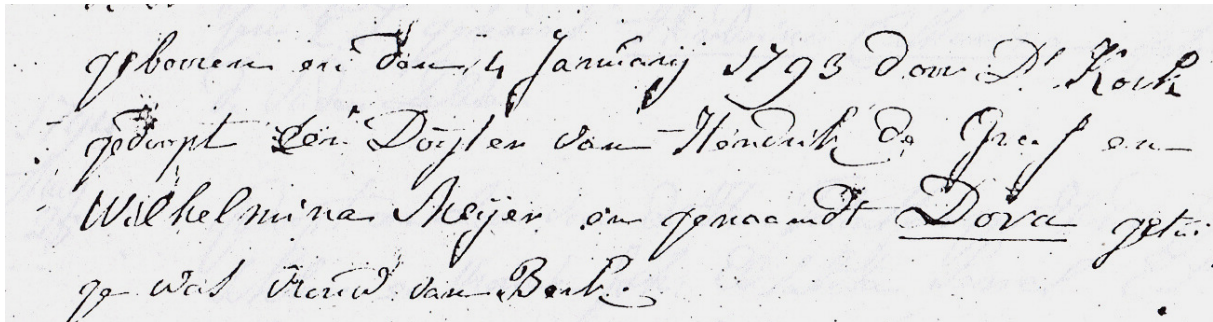 gebooren en den 4 Januarij 1793 door Ds Kock
gedoopt een Dogter van Hendrik de Graaf en
Wilhelmina Meijer en genaamdt Dora getui
ge was vrouw van Berk.